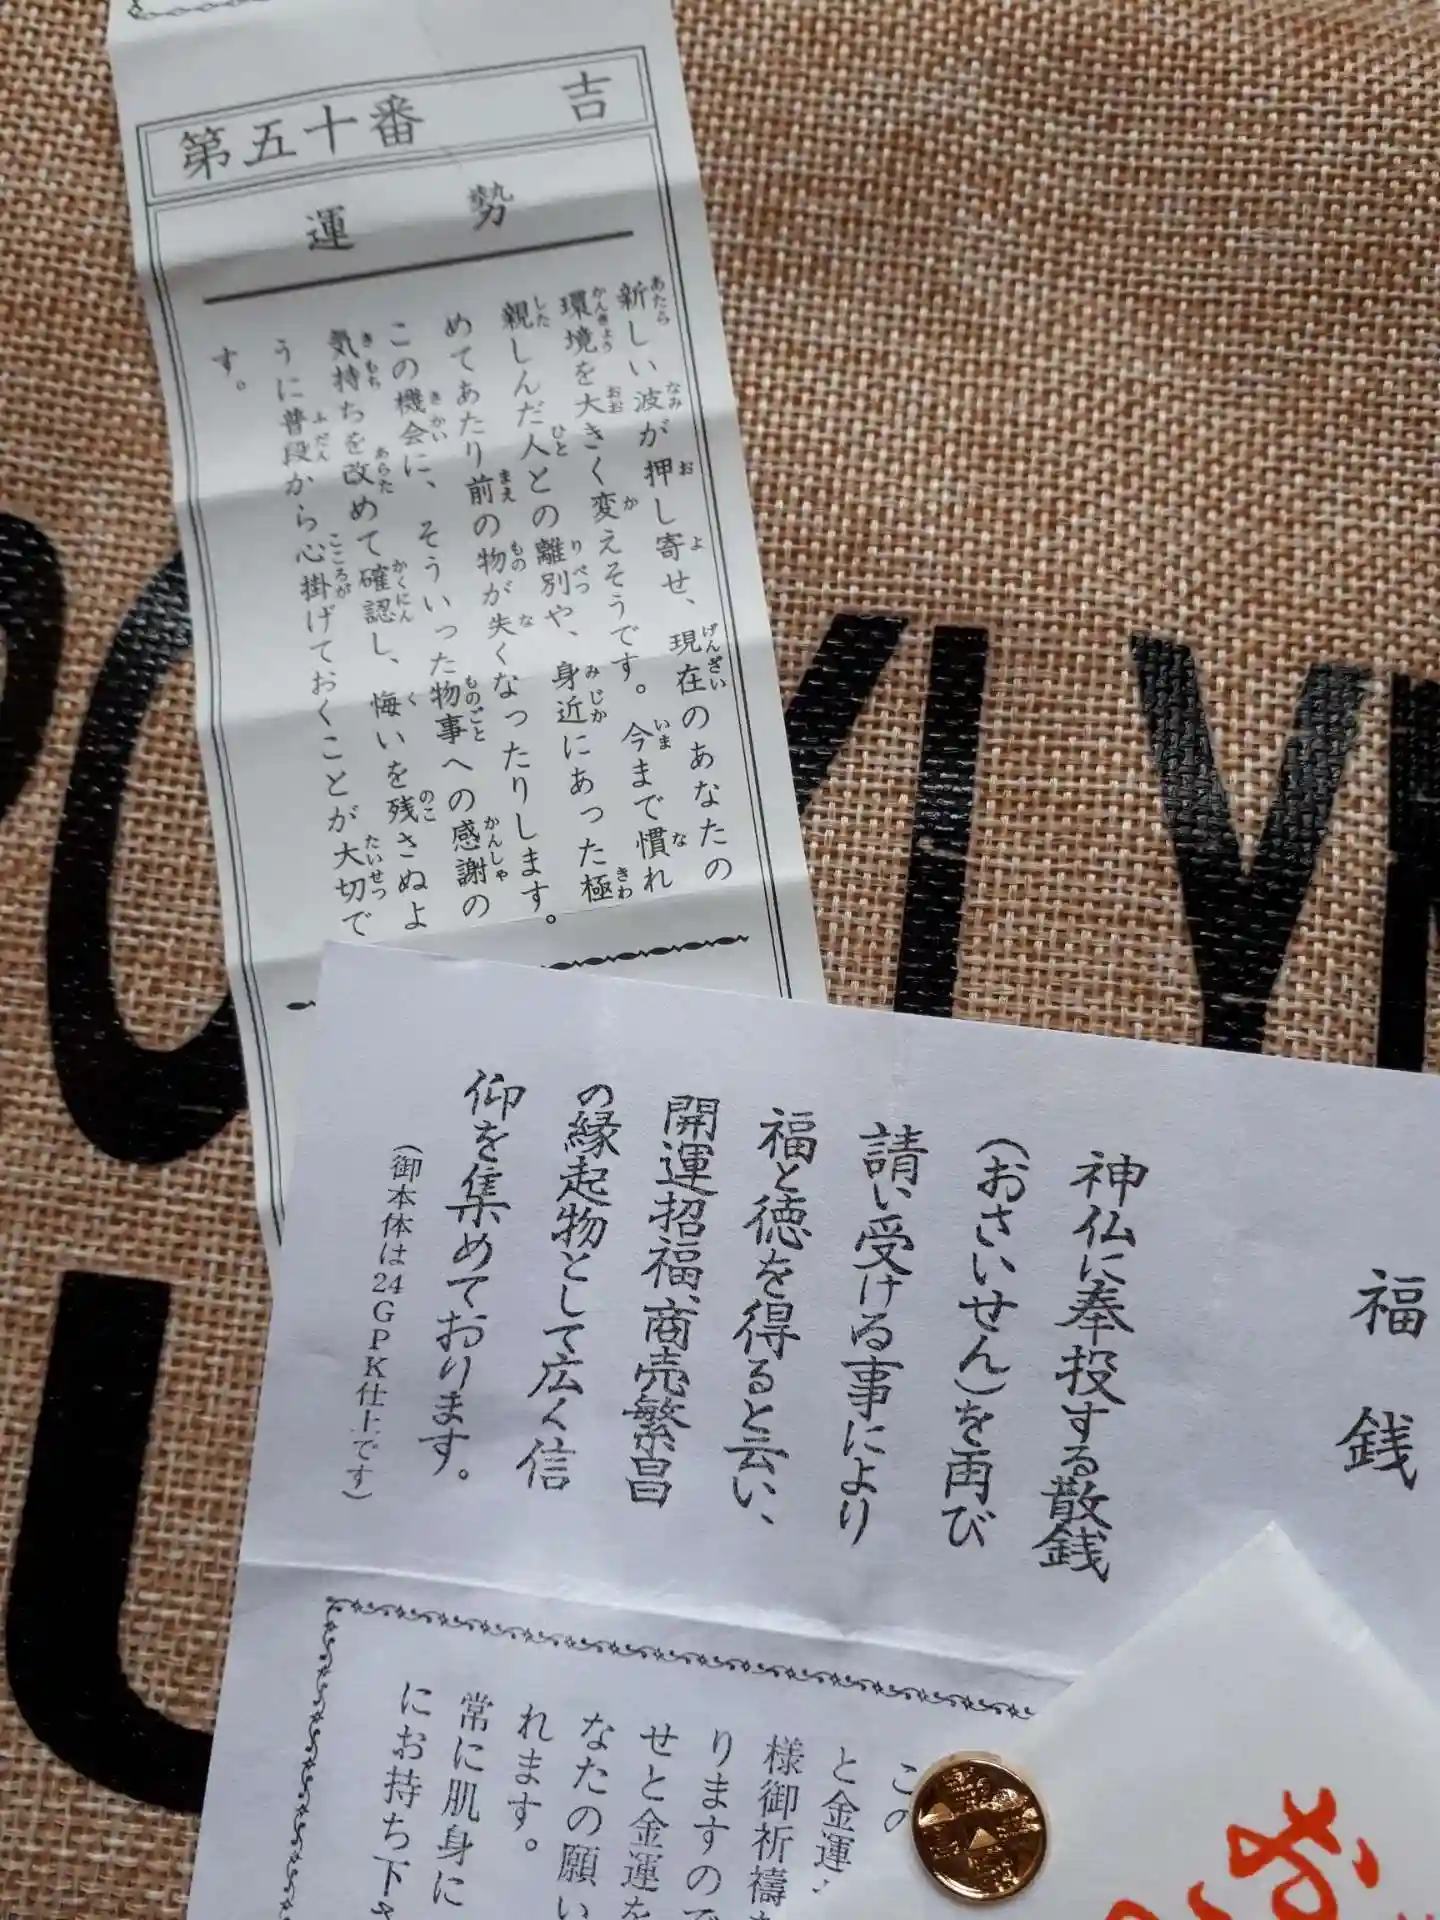 第五十番 吉
運勢
新しい波が押し寄せ、現在のあなたの
環境を大きく変えそうです。今まで慣れ
親しんだ人との離別や、身近にあった極
めてあたり前の物が失くなったりします。
この機会に、そういった物事への感謝の
気持ちを改めて確認し、悔いを残さぬよ
うに普段から心掛けておくことが大切で
す。
福銭
神仏に奉投する散銭
(おさいせん)を再び
請い受ける事により
福と徳を得ると云い、
開運招福、商売繁昌
の縁起物として広く信
仰を集めております。
(御本体は24GPK仕上です)
この
と金運
様御祈禱
りますので
せと金運を
なたの願い
れます。
常に肌身に
にお持ち下さ
お